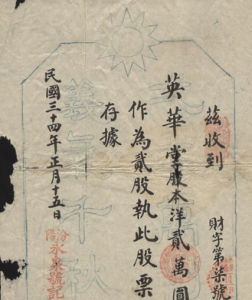 財字第柒號
茲收到
英華堂廠本洋貳萬圓
作為貳股執此股票
存據
民國三十四年正月十五日
永泉號記
義 千秋